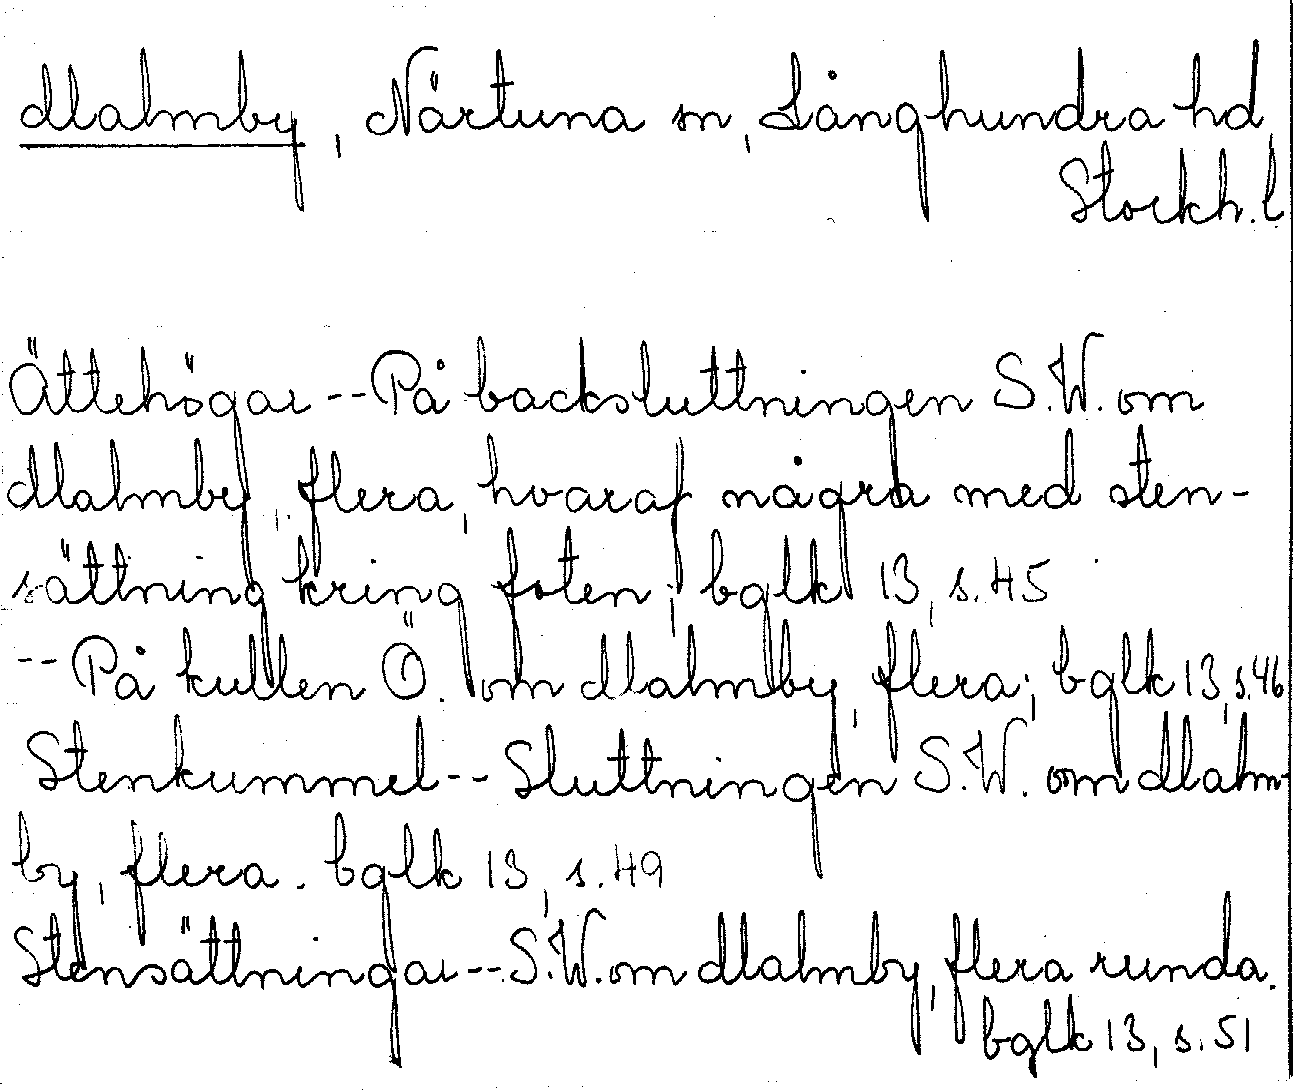 Malmby, Närtuna sn, Långhundra hd,
Stockh. l
Ättehögar -- På backsluttningen S.W. om
Malmby, flera, hvaraf några med sten-
sättning kring foten; bglk 13, s. 45
-- På kullen Ö. om Malmby, flera; bglk 13, s. 46
Stenkummel -- Sluttningen S.W. om Malm-
by, flera. bglk 13, s. 49
Stensättningar -- S.W. om Malmby, flera runda.
bglk 13, s. 51